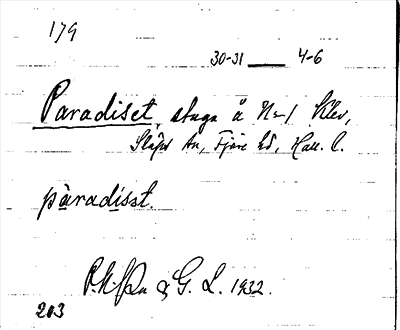 179
30-31 — 4-6
Paradiset, stuga å N=1 Klev,
Släps sn, Fjäre hd, Hall. l.
pàradísst.
& G. L. 1932.
203